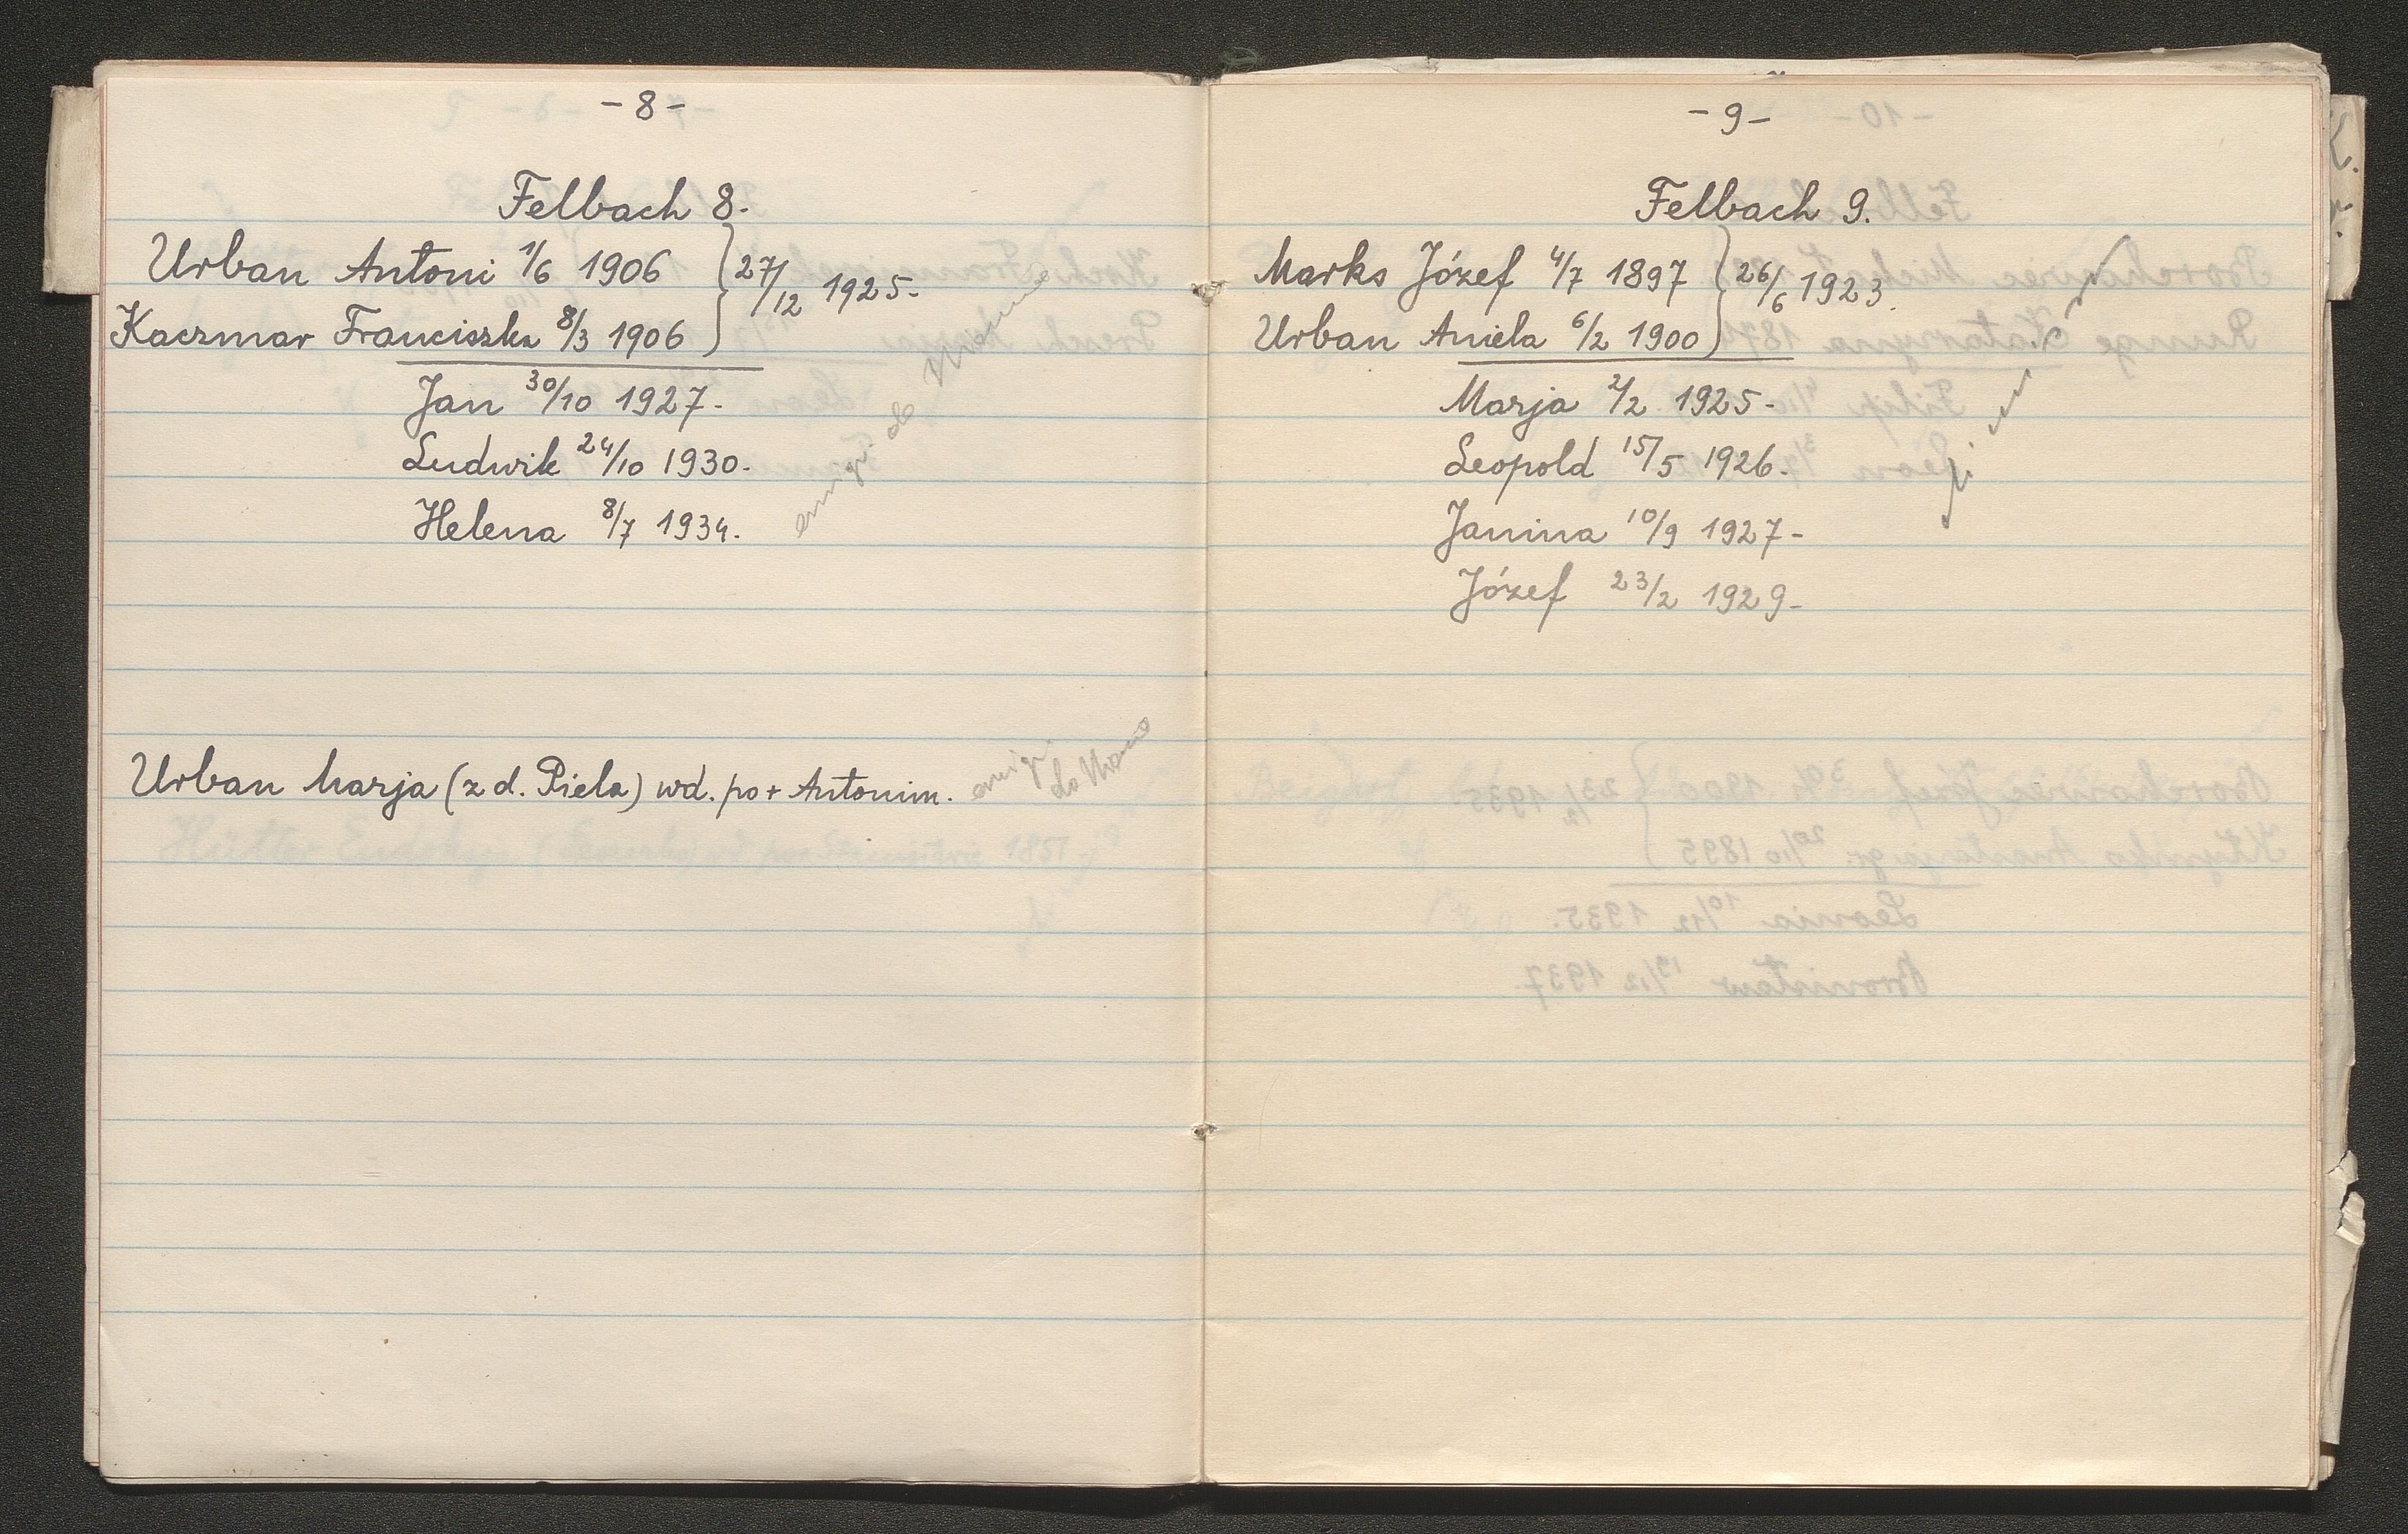 - 8 -
Felbach 8.
Urban Antoni 1/6 1906 } 27/12 1925.
Kaczmar Franciszka 8/3 1906
Jan 30/10 1927.
Ludwik 24/10 1930.
Helena 8/7 1934.
emigr. do Niemiec
Urban Marja (z d. Piela) wd. po + Antonim.
emigr.
- 9 -
Felbach 9.
Marks Józef 4/7 1897 } 26/6 1923.
Urban Aniela 6/2 1900
Marja 2/2 1925.
Leopold 15/5 1926.
Janina 10/9 1927.
Józef 23/2 1929.